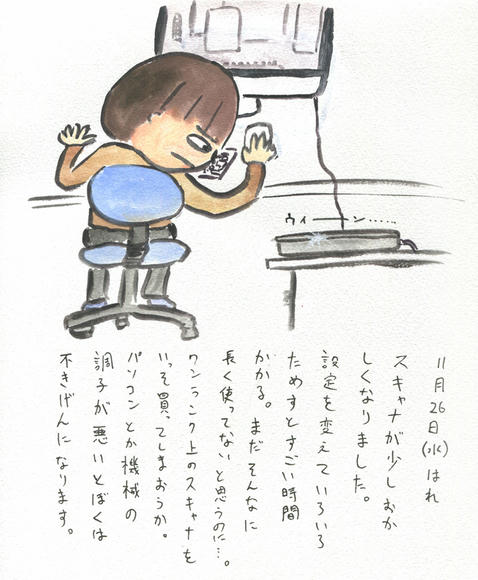 ウィーン……
11月26日(水)はれ
スキャナが少しおか
しくなりました。
設定を変えていろいろ
ためすとすごい時間
かかる。まだそんなに
長く使ってないと思うのに…。
ワンランク上のスキャナを
いっそ買ってしまおうか。
パソコンとか機械の
調子が悪いとぼくは
不きげんになります。